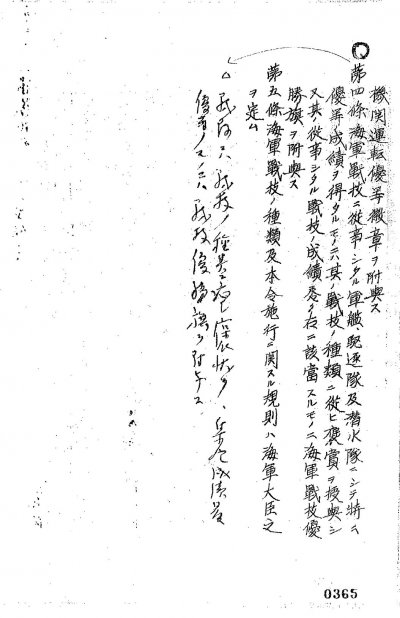 機関運転優等徽章ヲ附與ス
第四條海軍戰技ニ從事シタル軍艦、駆逐隊及潜水隊ニシテ特ニ
優等成績ヲ得タルモノニハ其ノ戰技ノ種類ニ從ヒ褒賞ヲ授與シ
又其ノ從事シタル戰技ノ成績悉ク右ニ該當スルモノニ海軍戰技優
勝旗ヲ附與ス
第五條海軍戰技ノ種類及本令施行ニ関スル規則ハ海軍大臣之
ヲ定ム
戰技ノ種
ノモノニハ戰技優勝旗ヲ附与ス
0365